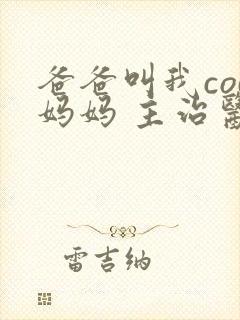 爸爸叫我co
妈妈 主治醫
雷吉纳